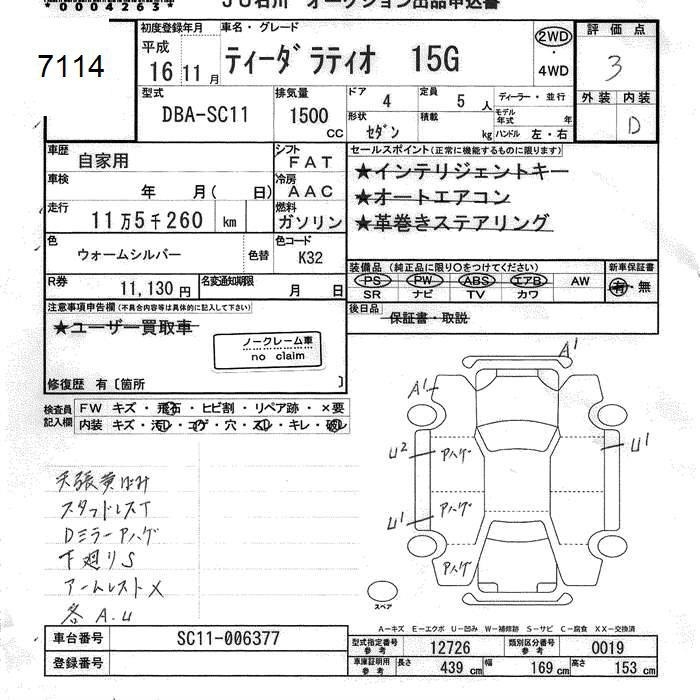 *00042635*
JU石川 オークション出品申込書
7114
初度登録年月
平成
16 11 月
車名・グレード
ティーダラティオ 15G
2WD
・
4WD
評価点
3
外装 内装
D
型式
DBA-SC11
排気量
1500
CC
ドア 4
定員 5 人
ディーラー・並行
形状 セダン
積載 kg
モデル年式 年
ハンドル 左・右
車歴
自家用
シフト
FAT
車検
年 月( 日)
冷房
AAC
走行
11万5千260 km
燃料
ガソリン
色
ウォームシルバー
色替
色コード
K32
R券
11,130 円
名変通知期限
月 日
セールスポイント(正常に機能するものに限ります)
★インテリジェントキー
★オートエアコン
★革巻きステアリング
装備品(純正品に限り○をつけてください)
PS PW ABS エアB AW
SR ナビ TV カワ
新車保証書
有・無
後日品
保証書・取説
注意事項申告欄(不具合内容等は具体的に記入して下さい)
★ユーザー買取車
ノークレーム車
no claim
修復歴 有〔箇所 〕
検査員記入欄
FW キズ・飛石・ヒビ割・リペア跡・×要
内装 キズ・汚レ・コゲ・穴・スレ・キレ・破レ
天張黄ばみ
スタッドレスT
Dミラーアハゲ
下廻りS
アームレスト×
各A.U
A1
A1
U2
アハゲ
U1
U1
アハゲ
アハゲ
スペア
A-キズ E-エクボ U-凹み W-補修跡 S-サビ C-腐食 XX-交換済
車台番号
SC11-006377
登録番号
型式指定番号 参考 12726
類別区分番号 参考 0019
車庫証明用 参考 長さ 439 cm 幅 169 cm 高さ 153 cm